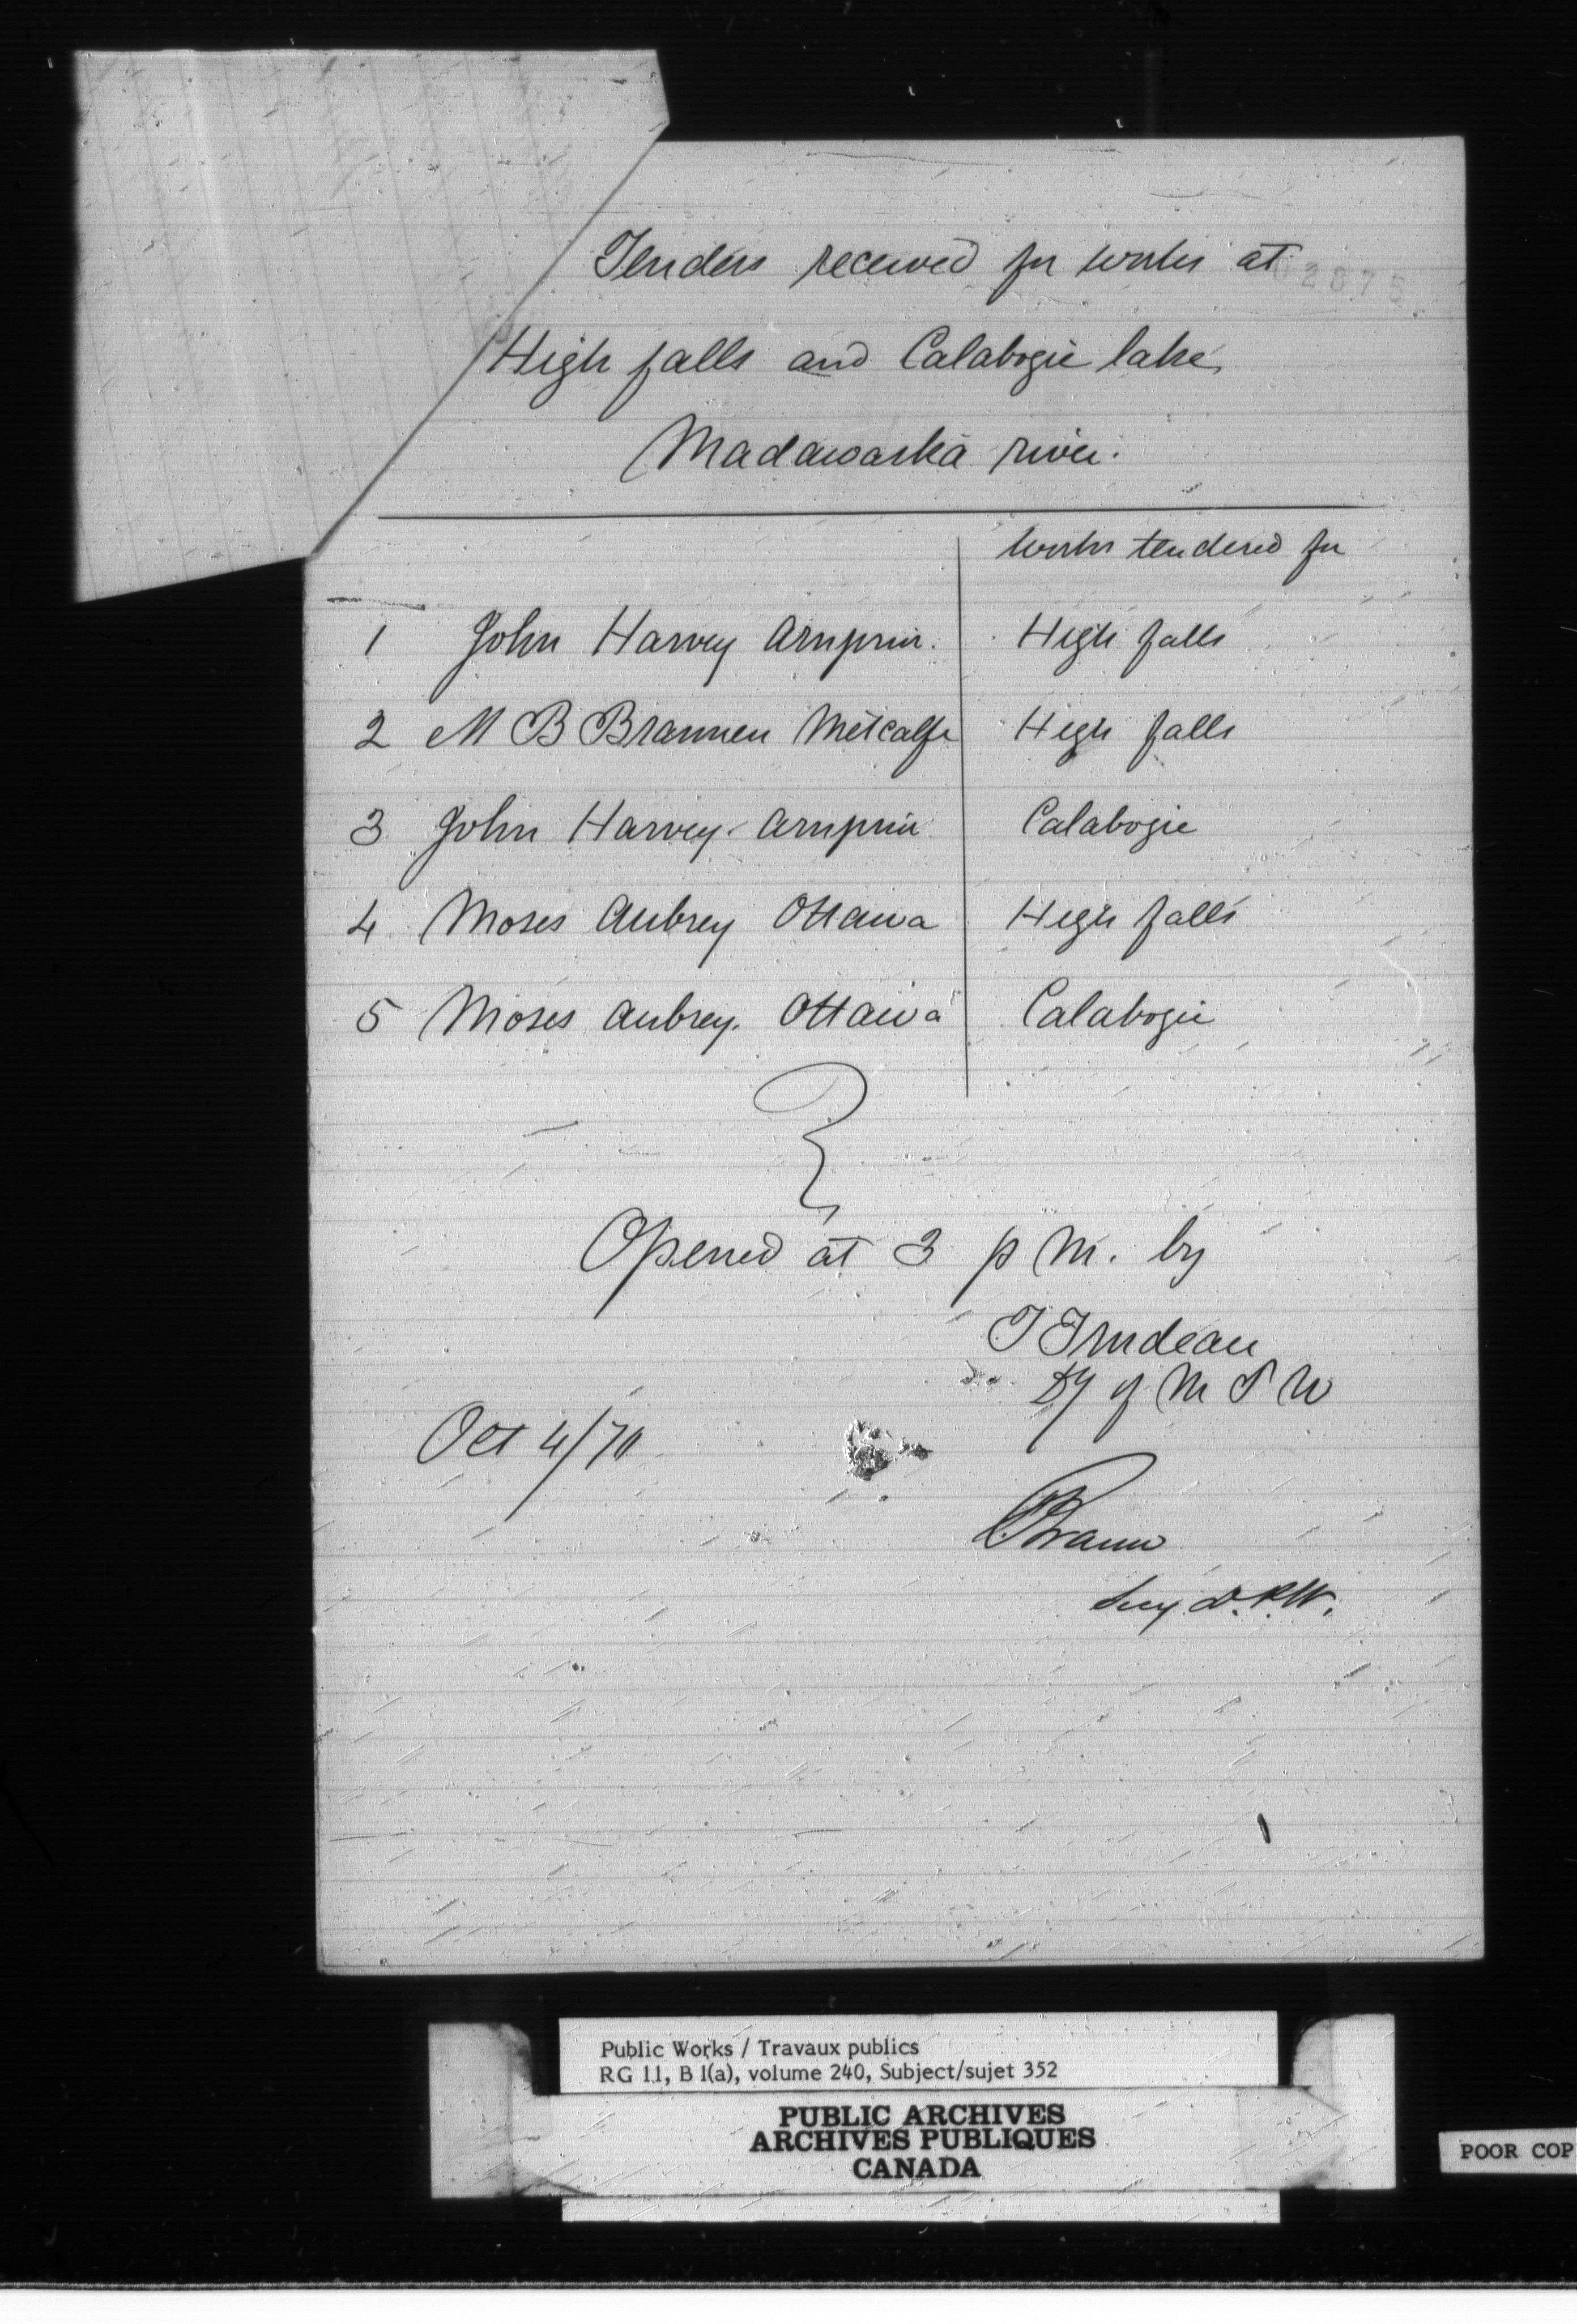 Tenders received for works at
02875
High falls and Calabogie lake,
Madawaska river.
Works tendered for
1 John Harvey Arnprior. High falls
2 M B Brannen Metcalfe High falls
3 John Harvey Arnprior Calabogie
4 Moses Aubrey Ottawa High falls
5 Moses Aubrey. Ottawa Calabogie
Opened at 3 p m. by
T Trudeau
Dy of M P W
Oct 4/70
Braun
Secy D.P.W.
Public Works / Travaux publics
RG 11, B 1(a), volume 240, Subject/sujet 352
PUBLIC ARCHIVES
ARCHIVES PUBLIQUES
CANADA
POOR COP